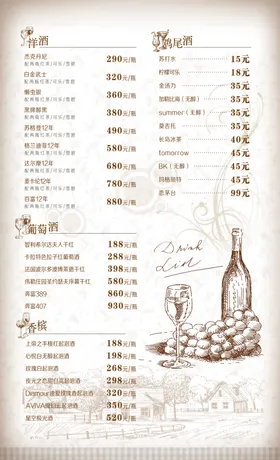 洋酒
杰克丹尼 290元/瓶
配两瓶红茶/可乐/雪碧
白金武士 320元/瓶
配两瓶红茶/可乐/雪碧
懒虫银 360元/瓶
配两瓶红茶/可乐/雪碧
黑牌醇黑 380元/瓶
配两瓶红茶/可乐/雪碧
苏格登12年 490元/瓶
配两瓶红茶/可乐/雪碧
格兰迪菲12年 580元/瓶
配两瓶红茶/可乐/雪碧
达尔摩12年 680元/瓶
配两瓶红茶/可乐/雪碧
麦卡伦12年 780元/瓶
配两瓶红茶/可乐/雪碧
百富12年 880元/瓶
配两瓶红茶/可乐/雪碧
葡萄酒
智利希尔达夫人干红 188元/瓶
卡拉特色拉子红葡萄酒 288元/瓶
法国波尔多博莱斯干红 398元/瓶
奔富389 860元/瓶
奔富407 930元/瓶
香槟
188元/瓶
心悦白无醇起泡酒 198元/瓶
玫瑰白起泡酒 268元/瓶
298元/瓶
320元/瓶
520元/瓶
星空极光酒 520元/瓶
鸡尾酒
苏打水 15元
柠檬可乐 18元
金汤力 35元
加勒比海（无醇） 35元
summer（无醇） 35元
莫吉托 35元
长岛冰茶 40元
tomorrow 45元
BK（无醇） 45元
玛格丽特 45元
恋茅台 99元
Drink
List